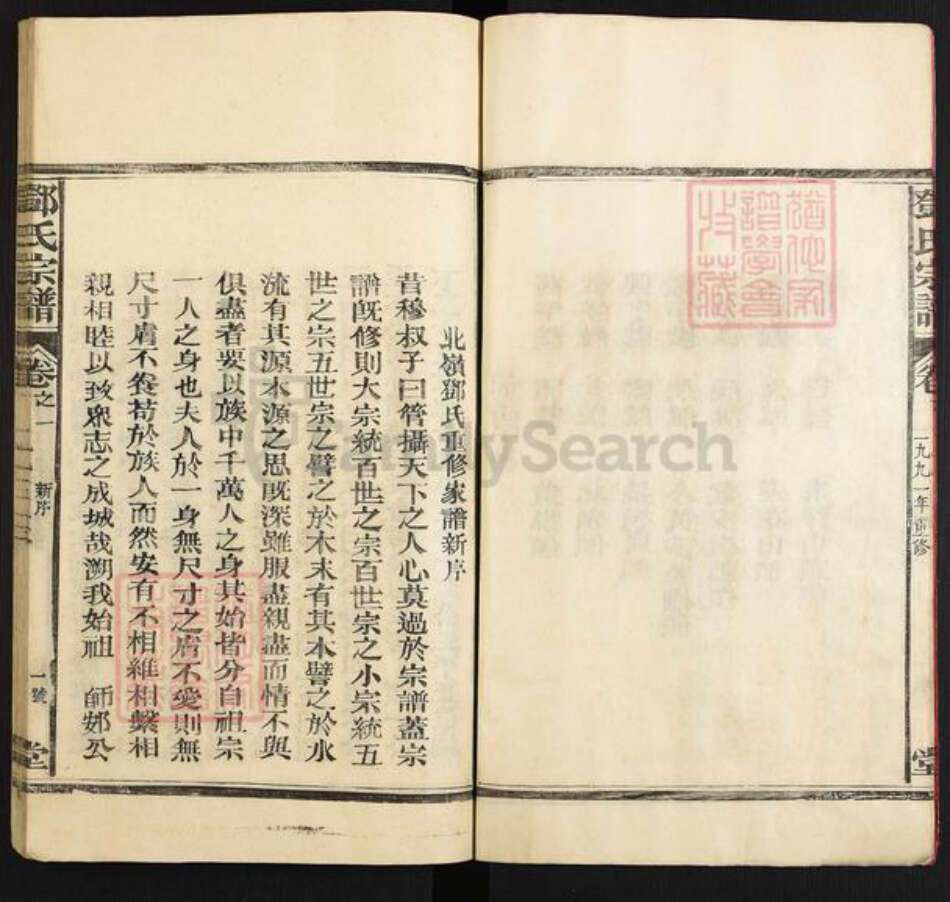 鄧氏宗譜
卷
一九九一年重修
堂
猶他家
譜學會
收藏
北嶺鄧氏重修家譜新序
昔穆叔子曰管攝天下之人心莫過於宗譜蓋宗
譜旣修則大宗統百世之宗百世宗之小宗統五
世之宗五世宗之譬之於木末有其本譬之於水
流有其源木源之思旣深雖服盡親盡而情不與
俱盡者要以族中千萬人之身其始皆分自祖宗
一人之身也夫人於一身無尺寸之膚不愛則無
尺寸膚不養苟於族人而然安有不相維相繫相
親相睦以致衆志之成城哉溯我始祖 師郊公
鄧氏宗譜
卷之一
新序
一號
堂
FamilySearch